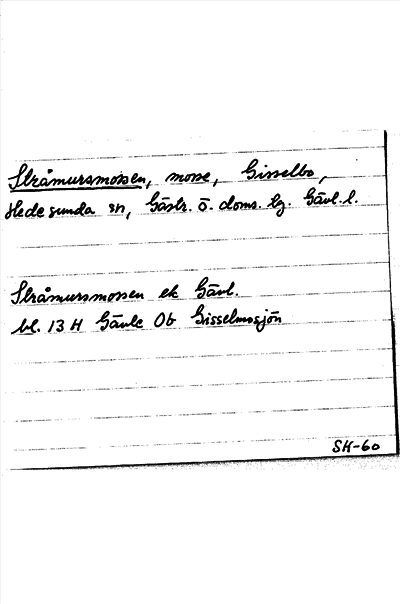 Stråmursmossen, mosse, Gisselbo,
Hedesunda sn, Gästr. ö. doms. lg. Gävl. l.
Stråmursmossen ek Gävl.
bl. 13 H Gävle Ob Gisselmosjön
SH-60